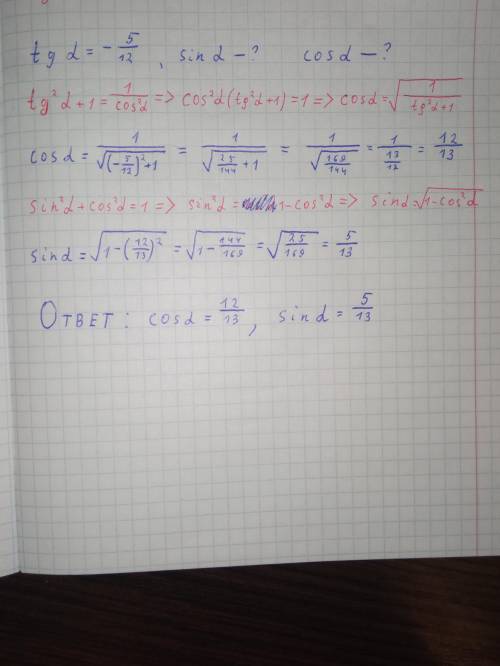 tg α = - 5/12 , sin α - ? cos α - ?
tg²α + 1 = 1/cos²α => cos²α (tg²α + 1) = 1 => cos α = √(1/(tg²α + 1))
cos α = 1/√((-5/12)² + 1) = 1/√(25/144 + 1) = 1/√(169/144) = 1/(13/12) = 12/13
sin²α + cos²α = 1 => sin²α = 1 - cos²α => sin α = √(1 - cos²α)
sin α = √(1 - (12/13)²) = √(1 - 144/169) = √(25/169) = 5/13
Ответ: cos α = 12/13, sin α = 5/13